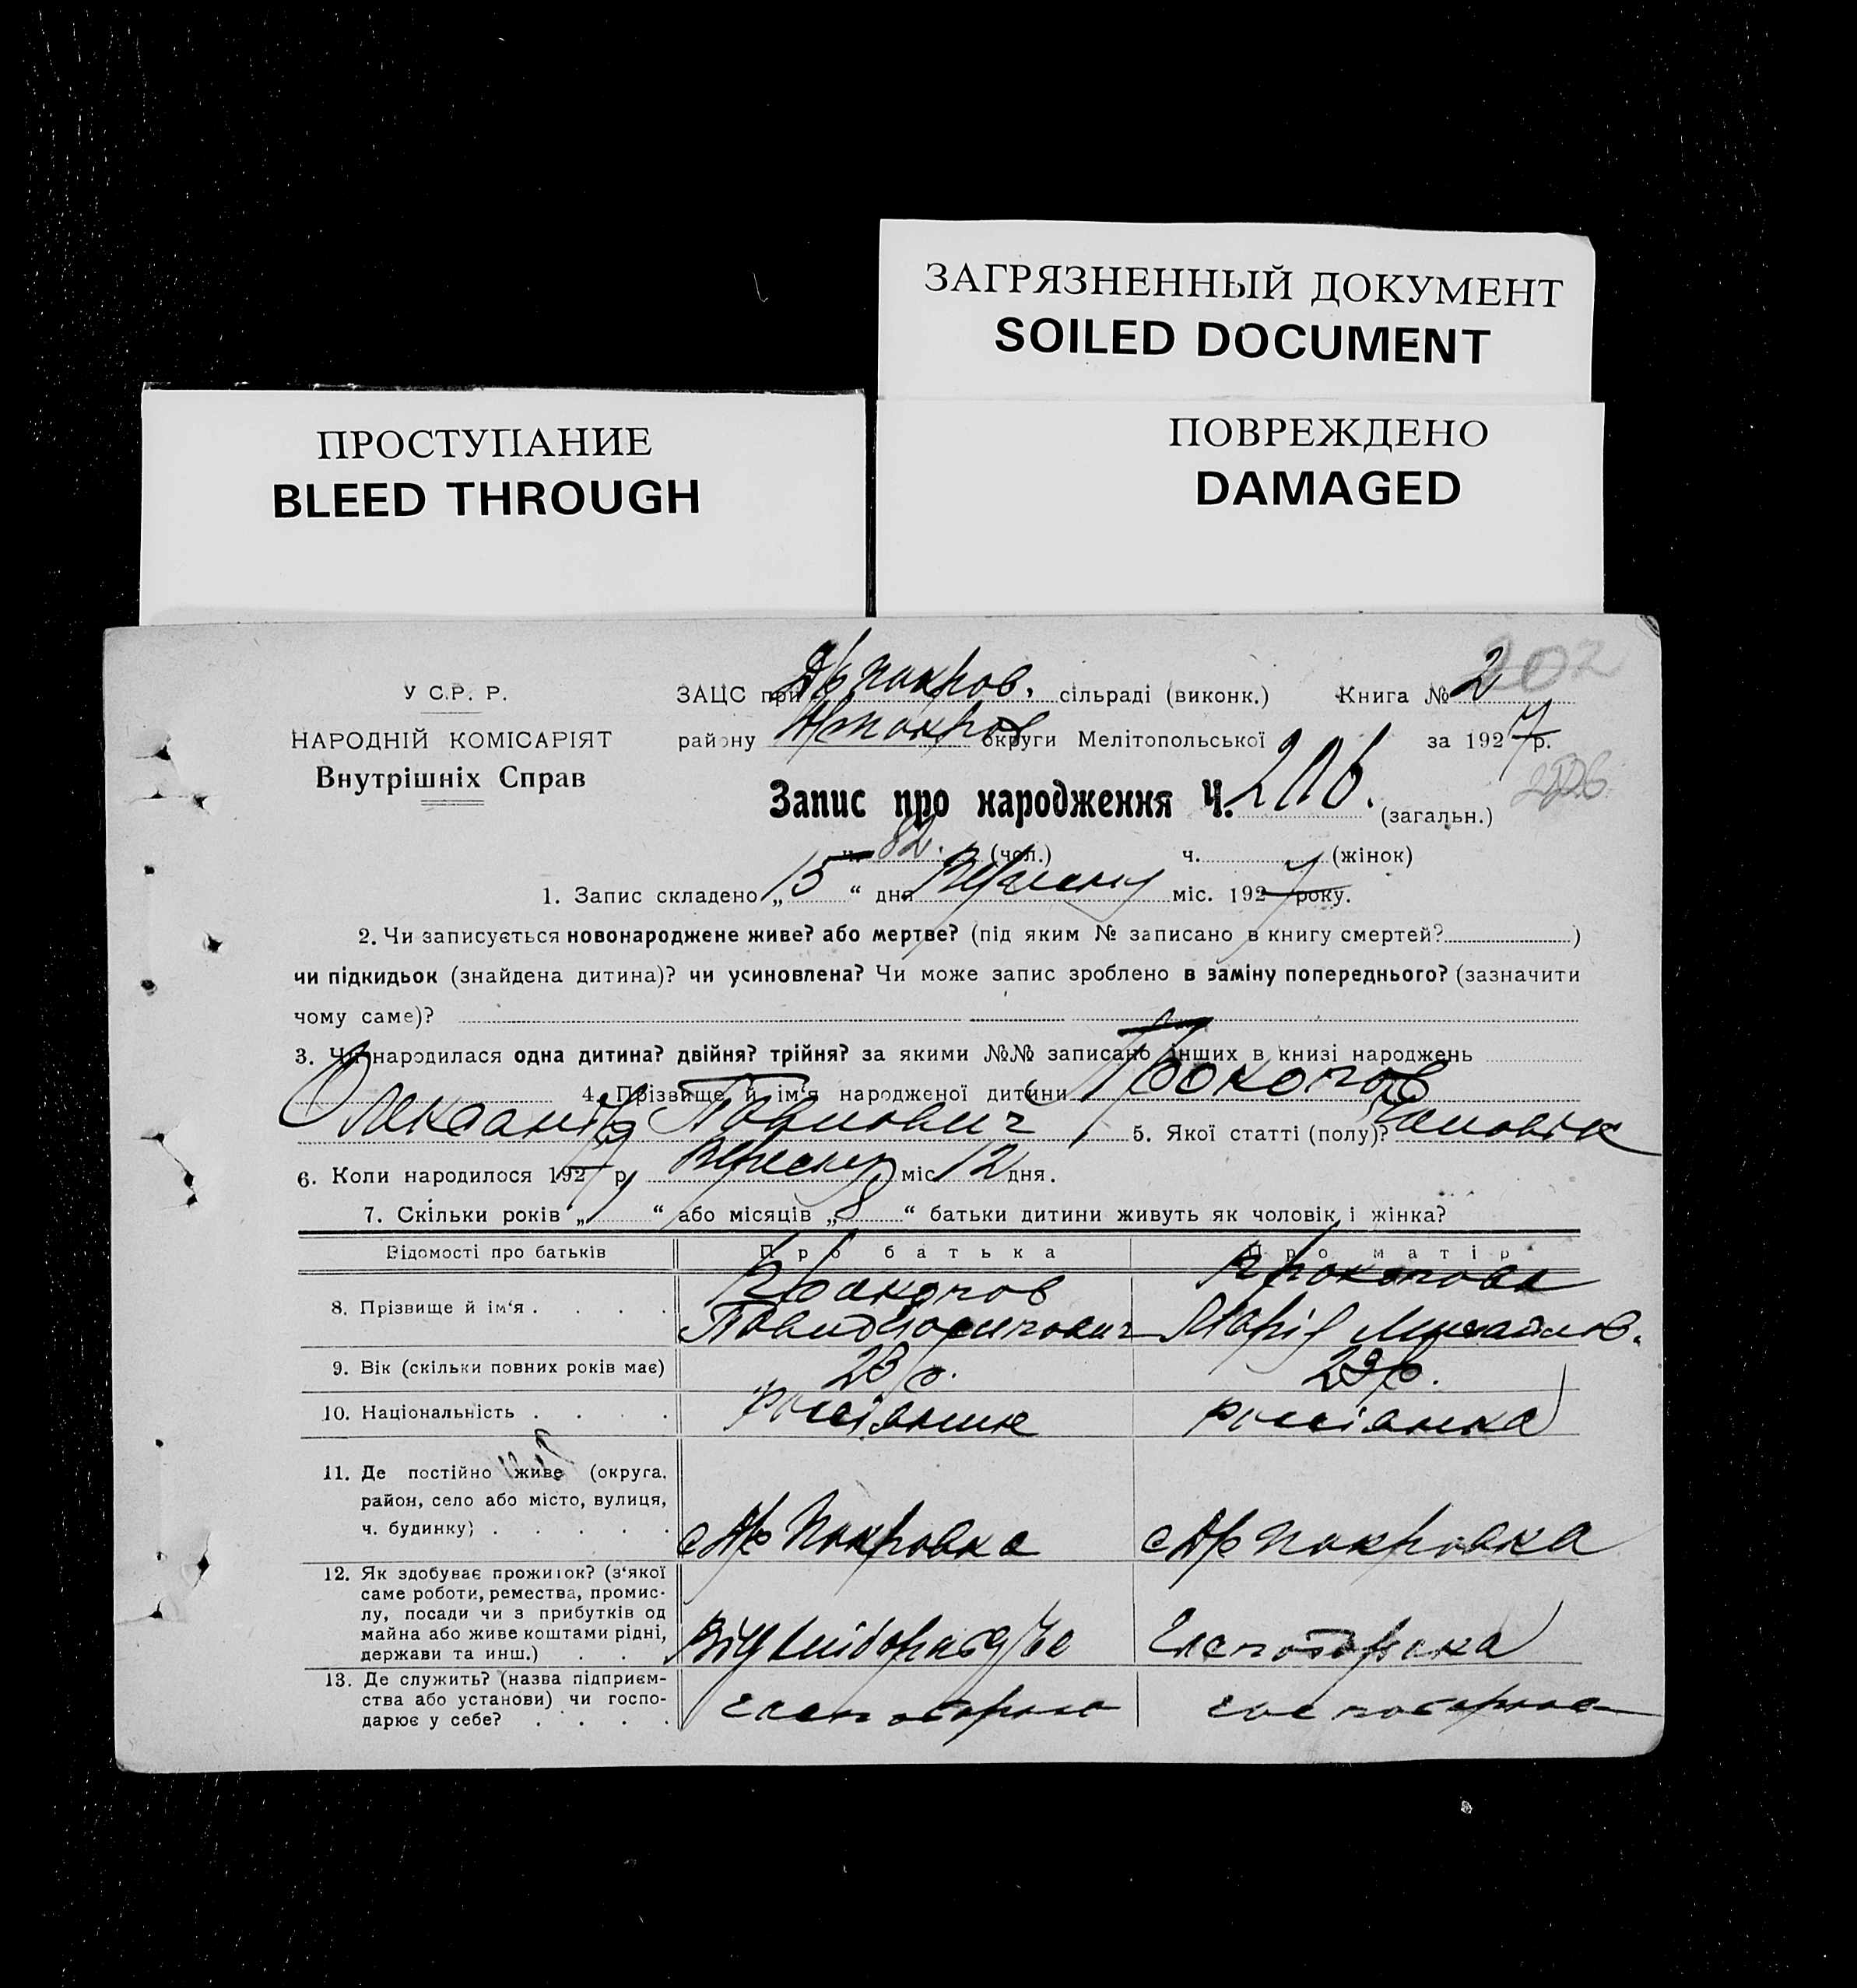 ЗАГРЯЗНЕННЫЙ ДОКУМЕНТ
SOILED DOCUMENT
ПРОСТУПАНИЕ
BLEED THROUGH
ПОВРЕЖДЕНО
DAMAGED
202
У С.Р. Р.
НАРОДНІЙ КОМІСАРІЯТ
Внутрішніх Справ
ЗАЦС при покров. сільраді (виконк.) Книга № 2
району округи Мелітопольської за 1927 р.
Запис про народження Ч. 206. (загальн.) 206
ч. 82. (чол.) ч. (жінок)
1. Запис складено „15“ дня Вересня міс. 1927 року.
2. Чи записується новонароджене живе? або мертве? (під яким № записано в книгу смертей? )
чи підкидьок (знайдена дитина)? чи усиновлена? Чи може запис зроблено в заміну попереднього? (зазначити
чому саме)?
3. Чи народилася одна дитина? двійня? трійня? за якими №№ записано інших в книзі народжень
4. Прізвище й ім‘я народженої дитини Прокопов
Олександр Павлович 5. Якої статті (полу)? Чоловік
6. Коли народилося 1927 р. Вересня міс. 12 дня.
7. Скільки років „ “ або місяців „8“ батьки дитини живуть як чоловік і жінка?
Відомості про батьків Про батька Про матір
8. Прізвище й ім‘я . . . . Прокопов Прокопова
Павло Марія Михайлов.
9. Вік (скільки повних років має) 23 р. 23 р.
10. Національність . . . . россіянин россіянка
11. Де постійно живе (округа,
район, село або місто, вулиця,
ч. будинку) . . . . . Покровка Покровка
12. Як здобуває прожиток? (з‘якої
саме роботи, ремества, промис-
лу, посади чи з прибутків од
майна або живе коштами рідні,
держави та инш.) . . Від хліборобства
13. Де служить? (назва підприєм-
ства або установи) чи госпо-
дарює у себе? . . . .